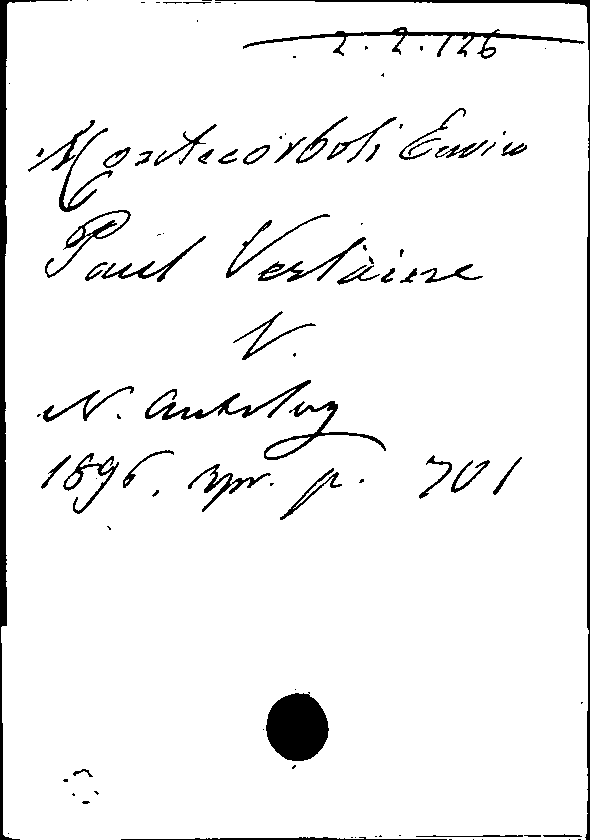 2.2.126
Montecorboli Enrico
Paul Verlaine
V.
N. Antolog
1896. apr. p. 701